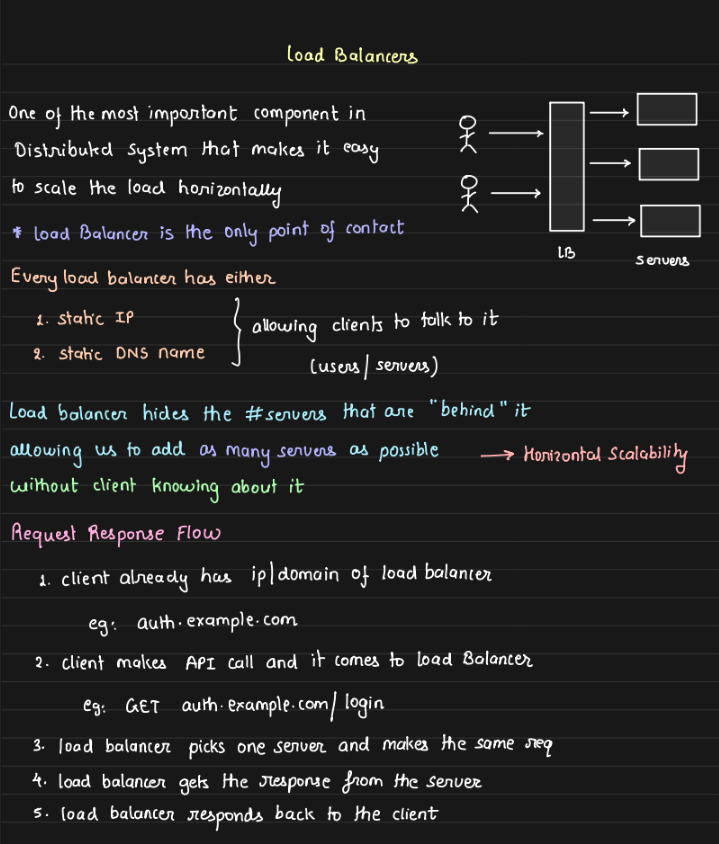 Load Balancers
One of the most important component in
Distributed System that makes it easy
to scale the load horizontally
* Load Balancer is the only point of contact
LB
servers
Every load balancer has either
1. static IP
2. static DNS name
allowing clients to talk to it
(users/servers)
Load balancer hides the #servers that are "behind" it
allowing us to add as many servers as possible → Horizontal Scalability
without client knowing about it
Request Response Flow
1. client already has ip/domain of load balancer
eg: auth.example.com
2. client makes API call and it comes to Load Balancer
eg: GET auth.example.com/login
3. load balancer picks one server and makes the same req
4. load balancer gets the response from the server
5. load balancer responds back to the client